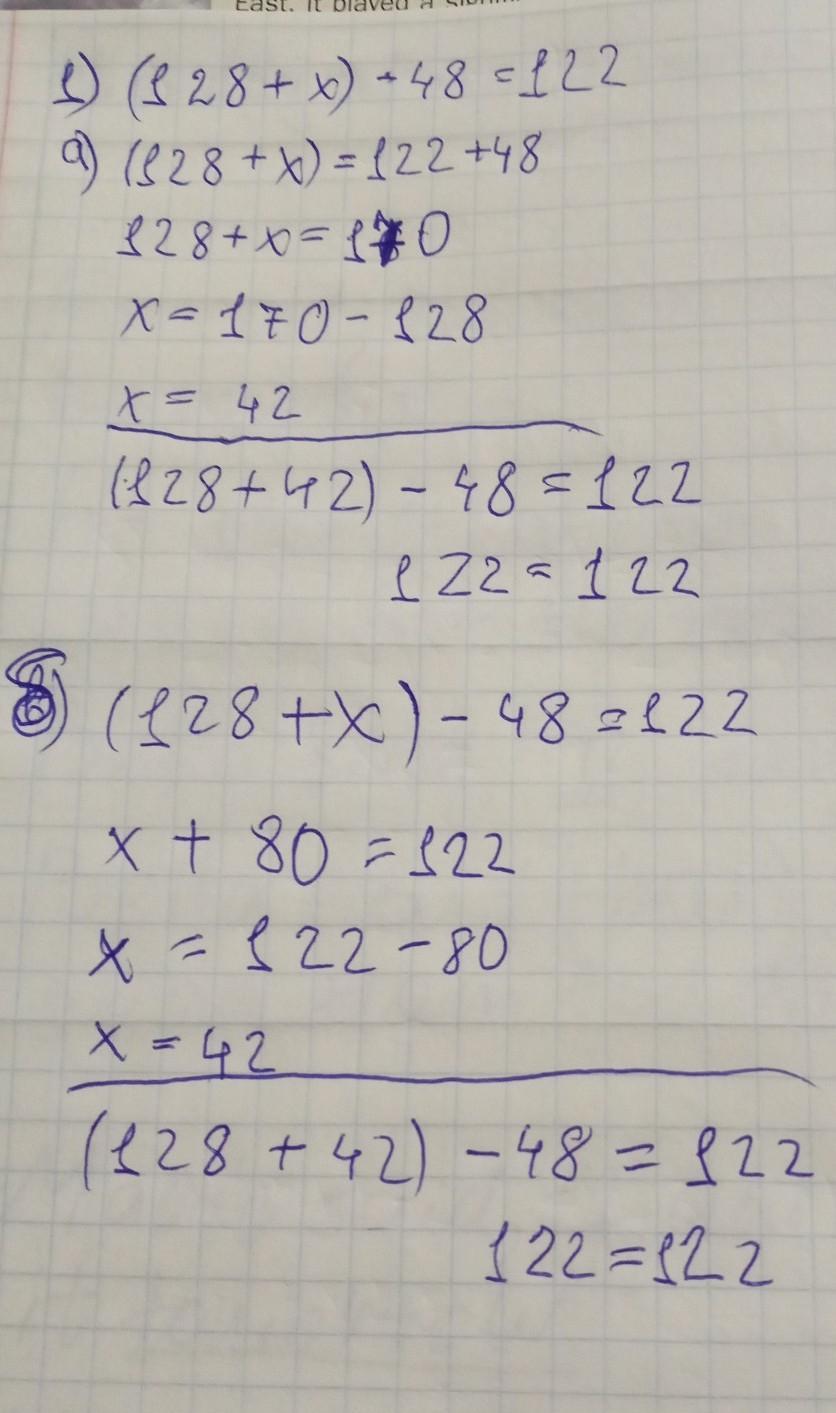 East. It played a
1) (128 + x) - 48 = 122
а) (128 + x) = 122 + 48
128 + x = 170
x = 170 - 128
x = 42
(128 + 42) - 48 = 122
122 = 122
б) (128 + x) - 48 = 122
x + 80 = 122
x = 122 - 80
x = 42
(128 + 42) - 48 = 122
122 = 122